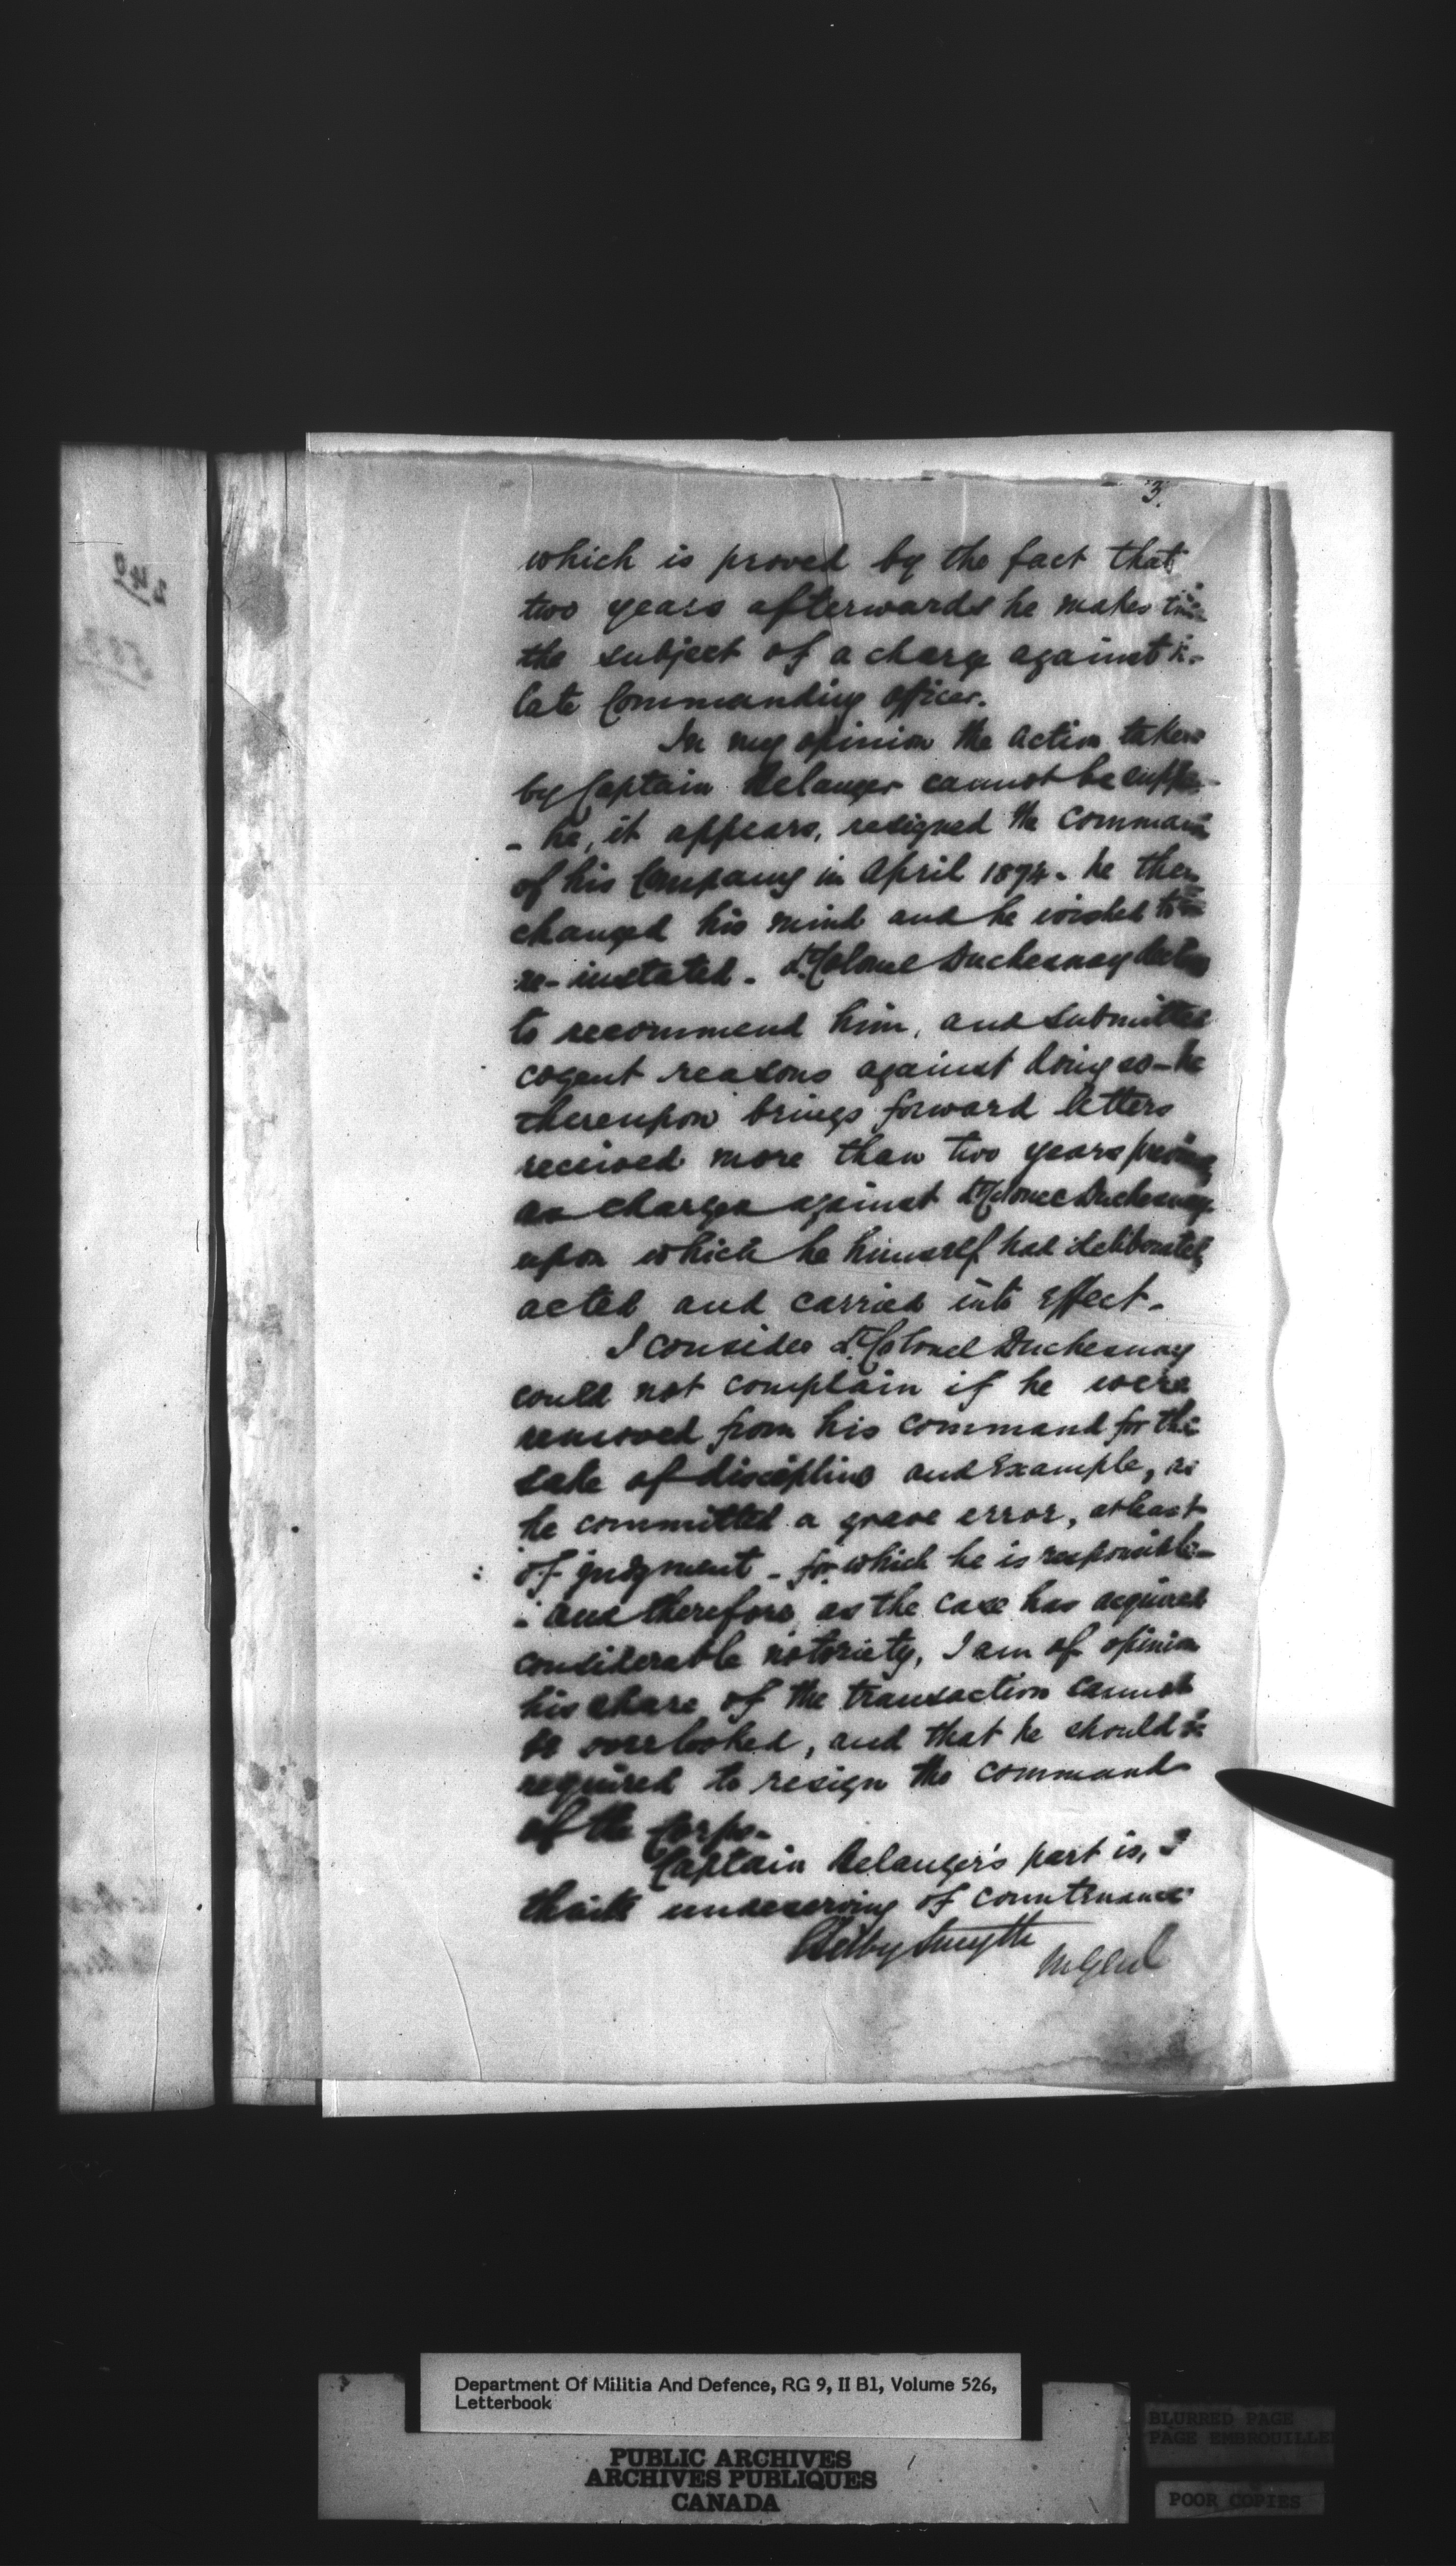 3.
which is proved by the fact that
two years afterwards he makes
the subject of a charge against
late Commanding officer.
In my opinion the action taken
by Captain Belanger cannot be
- he, it appears, resigned the command
of his Company in April 1874 - he then
changed his mind and he wished to
re-instated - Lt. Colonel Duchesnay
to recommend him, and submitted
cogent reasons against doing so - he
thereupon brings forward letters
received more than two years
as charges against Lt. Colonel Duchesnay
upon which he himself had deliberately
acted and carried into effect -
I consider Lt. Colonel Duchesnay
could not complain if he were
removed from his command for the
sake of discipline and Example, as
he committed a grave error, at least
of judgment - for which he is responsible -
- and therefore, as the case has acquired
considerable notoriety, I am of opinion
his share of the transaction cannot
be overlooked, and that he should be
required to resign the command
of the Corps -
Captain Belanger's part is, I
think undeserving of countenance
Selby Smyth
M Genl
240
Department Of Militia And Defence, RG 9, II B1, Volume 526,
Letterbook
PUBLIC ARCHIVES
ARCHIVES PUBLIQUES
CANADA
BLURRED PAGE
PAGE EMBROUILLE
POOR COPIES